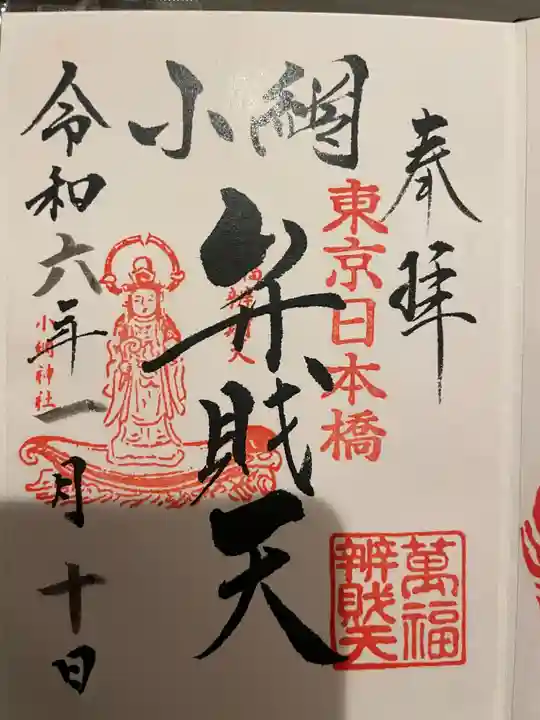 奉拝
東京日本橋
萬福
辨戝天
小網
弁財天
令和六年一月十日
小網神社